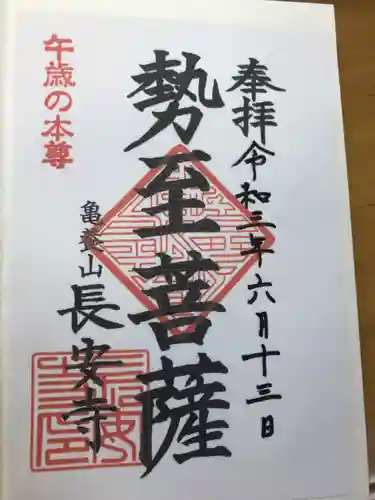 奉拝 令和三年六月十三日
勢至菩薩
亀養山
長安寺
午歳の本尊